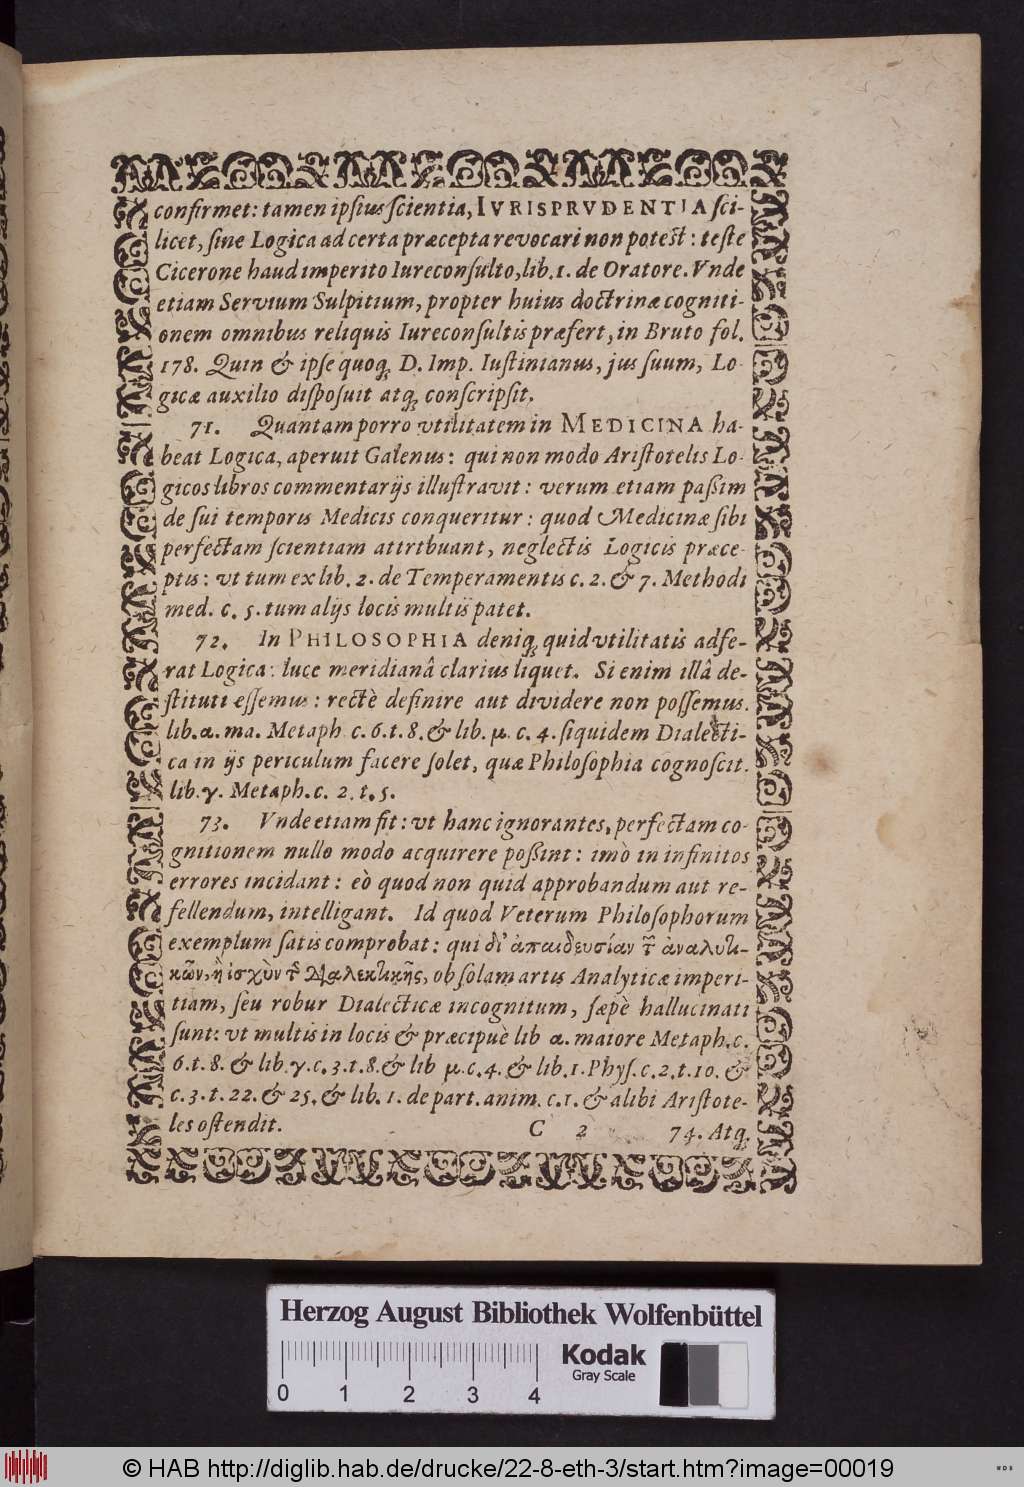 confirmet: tamen ipſius ſcientia, IVRISPRVDENTIA ſci-
licet, ſine Logica ad certa præcepta revocari non poteſt: teſte
Cicerone haud imperito Iureconſulto, lib. 1. de Oratore. Vnde
etiam Servium Sulpitium, propter huius doctrinæ cogniti-
onem omnibus reliquis Iureconſultis præfert, in Bruto fol.
178. Quin & ipſe quoq; D. Imp. Iuſtinianus, jus ſuum, Lo-
gicæ auxilio diſpoſuit atq; conſcripſit.
71. Quantam porro vtilitatem in MEDICINA ha-
beat Logica, aperuit Galenus: qui non modo Ariſtotelis Lo-
gicos libros commentarijs illuſtravit: verum etiam paßim
de ſui temporis Medicis conqueritur: quod Medicinæ ſibi
perfectam ſcientiam attribuant, neglectis Logicis præce-
ptis: vt tum ex lib. 2. de Temperamentis c. 2. & 7. Methodi
med. c. 5. tum alijs locis multis patet.
72. In PHILOSOPHIA deniq; quid vtilitatis adfe-
rat Logica: luce meridianâ clarius liquet. Si enim illâ de-
ſtituti eſſemus: rectè definire aut dividere non poſſemus.
lib. α. ma. Metaph. c. 6. t. 8. & lib. μ. c. 4. ſiquidem Dialecti-
ca in ijs periculum facere ſolet, quæ Philoſophia cognoſcit.
lib. γ. Metaph. c. 2. t. 5.
73. Vnde etiam fit: vt hanc ignorantes, perfectam co-
gnitionem nullo modo acquirere poßint: imò in infinitos
errores incidant: eò quod non quid approbandum aut re-
fellendum, intelligant. Id quod Veterum Philoſophorum
exemplum ſatis comprobat: qui δι' ἀπαιδευσίαν τ̃ ἀναλυτι-
κῶν, ἢ ἰσχὺν τ̃ διαλεκτικῆς, ob ſolam artis Analyticæ imperi-
tiam, ſeu robur Dialecticæ incognitum, ſæpè hallucinati
ſunt: vt multis in locis & præcipuè lib α. maiore Metaph. c.
6. t. 8. & lib. γ. c. 3. t. 8. & lib μ. c. 4. & lib. 1. Phyſ. c. 2. t. 10. &
c. 3. t. 22. & 25. & lib. 1. de part. anim. c. 1. & alibi Ariſtote-
les oſtendit.
C 2 74. Atq;
Herzog August Bibliothek Wolfenbüttel
Kodak
Gray Scale
0 1 2 3 4
© HAB http://diglib.hab.de/drucke/22-8-eth-3/start.htm?image=00019